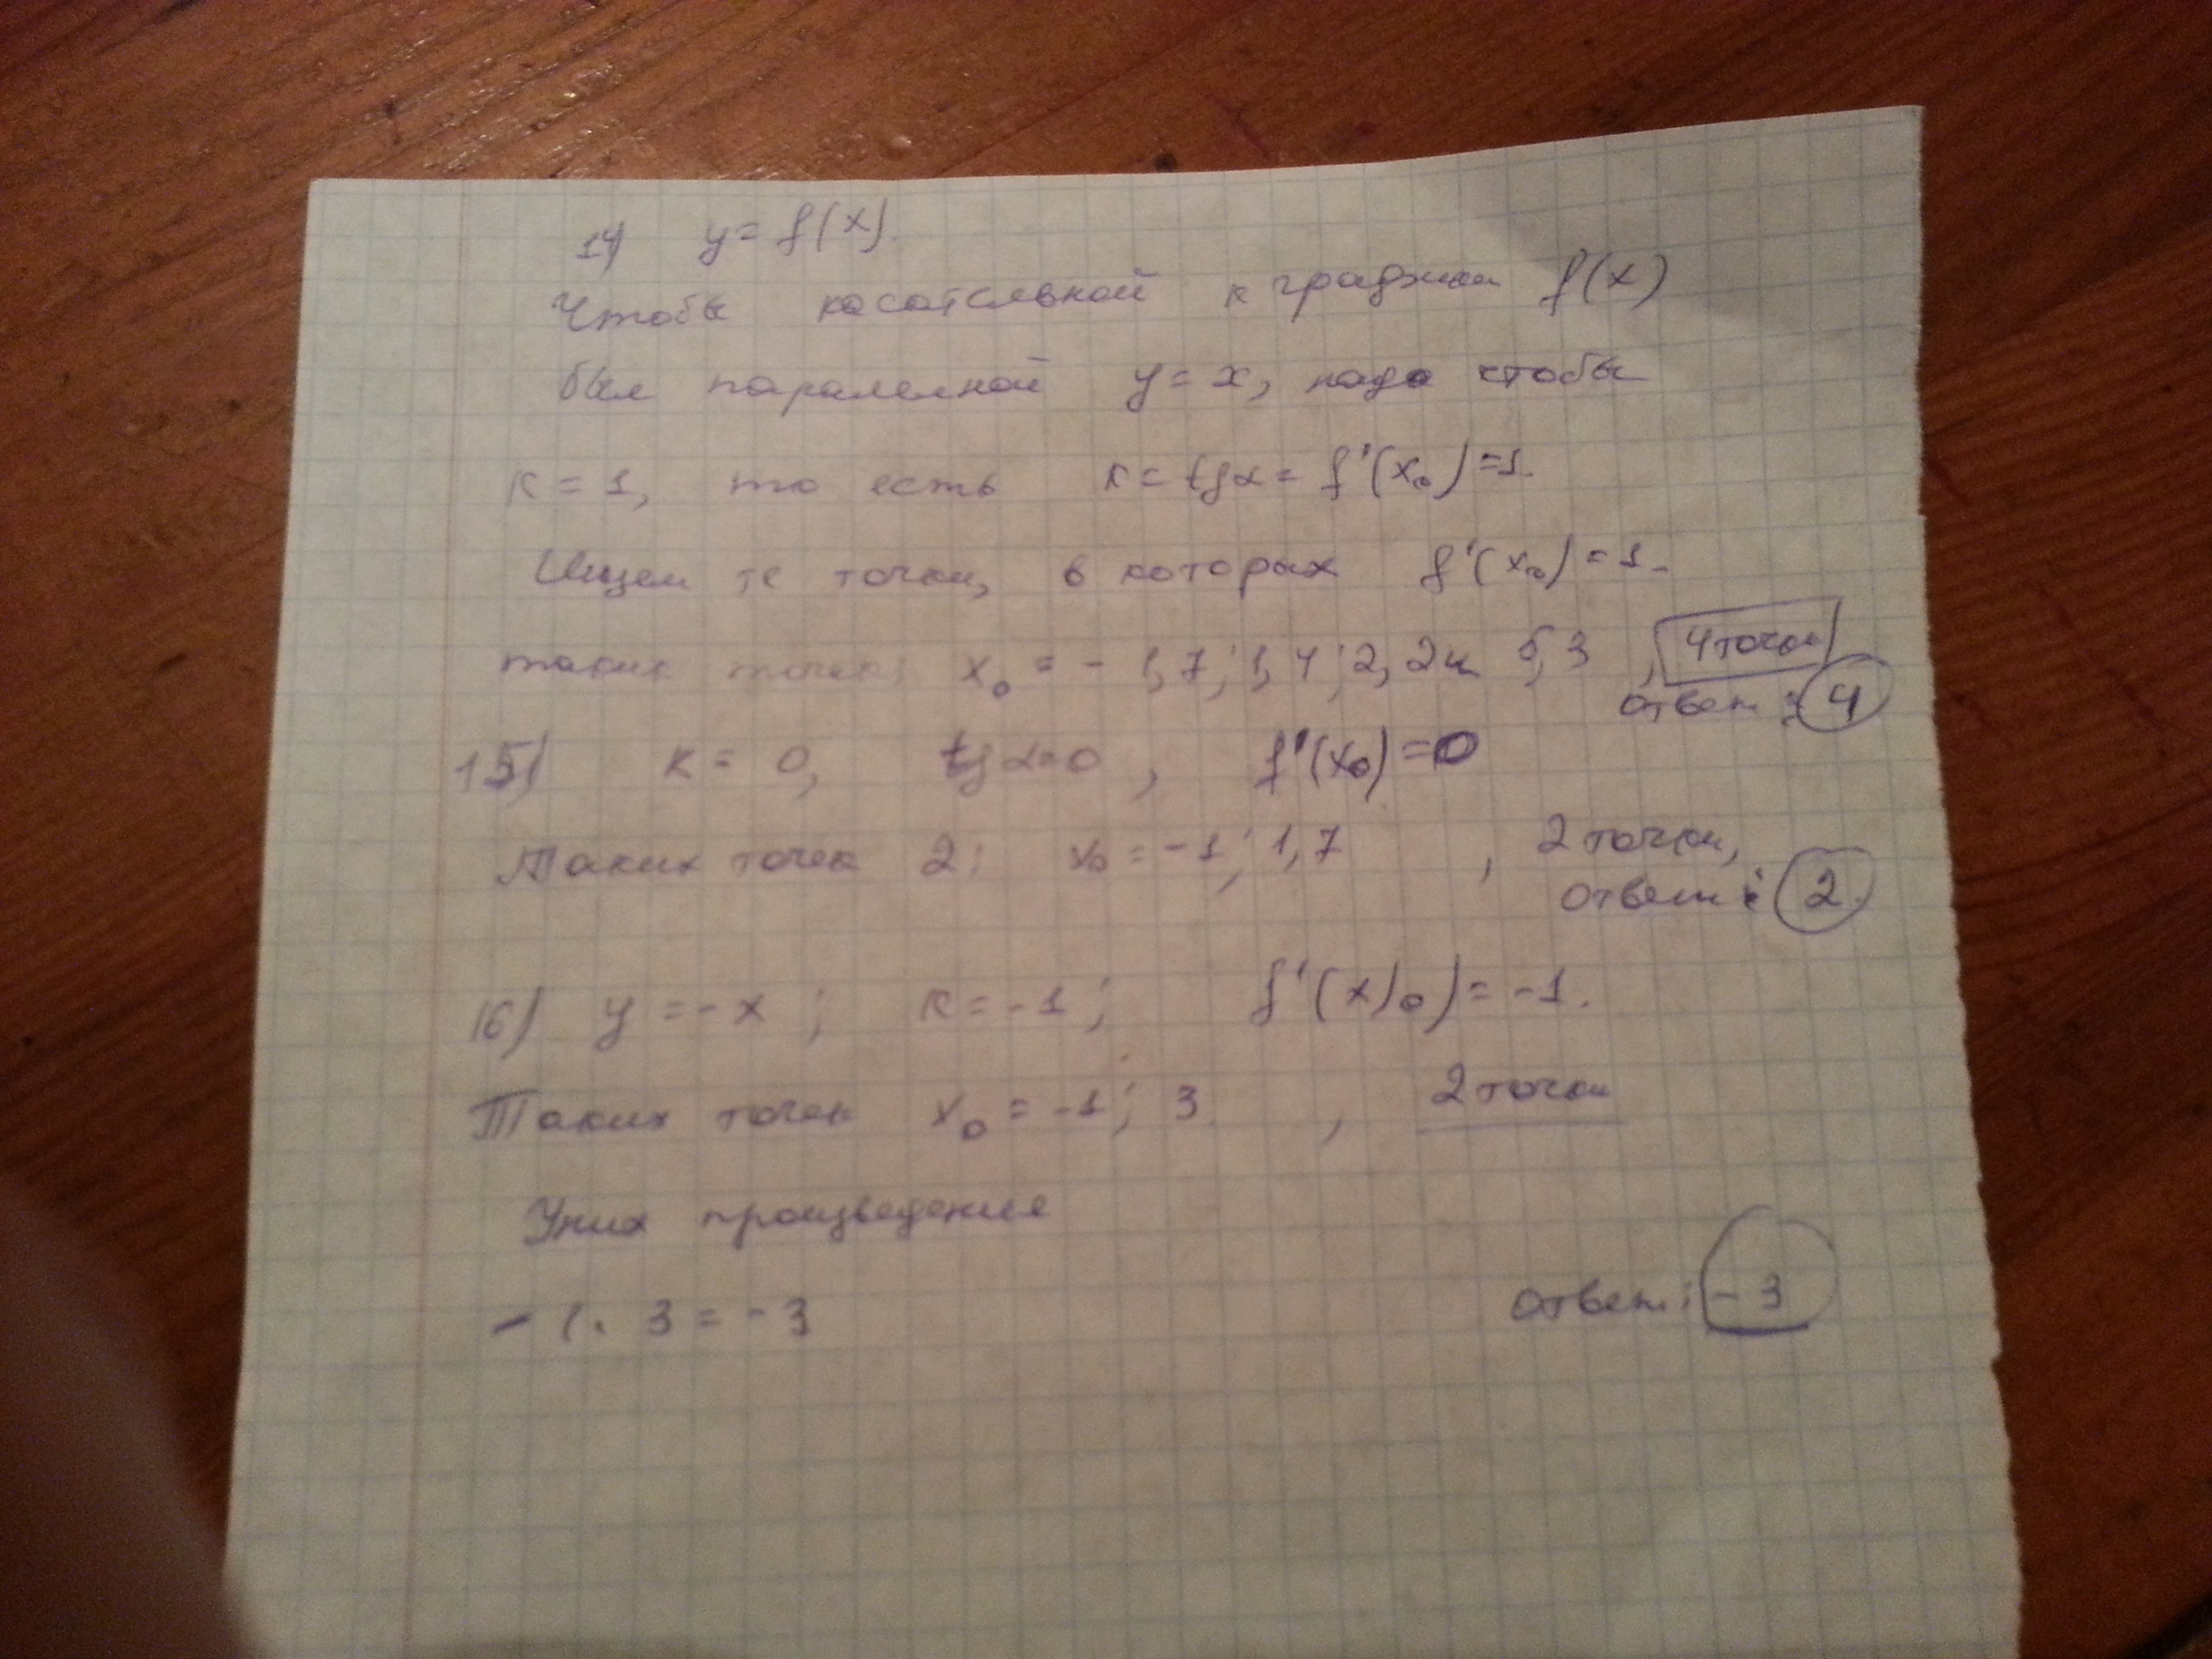 14) y = f(x).
Чтобы касательной к графики f(x)
был паралелной y = x, надо чтобы
к = 1, то есть к = tgα = f'(x₀) = 1.
Ищем те точки, в которых f'(x₀) = 1.
таких точек: x₀ = - 1,7; 1,4; 2,2 и 5,3 , 4 точки
ответ: 4
15) к = 0, tgα=0 , f'(x₀) = 0
Таких точек 2: x₀ = -1; 1,7 , 2 точки,
ответ: 2.
16) y = -x ; к = -1; f'(x)₀) = -1.
Таких точек x₀ = -1; 3 , 2 точки
У них произведение
- 1 · 3 = - 3
ответ: - 3